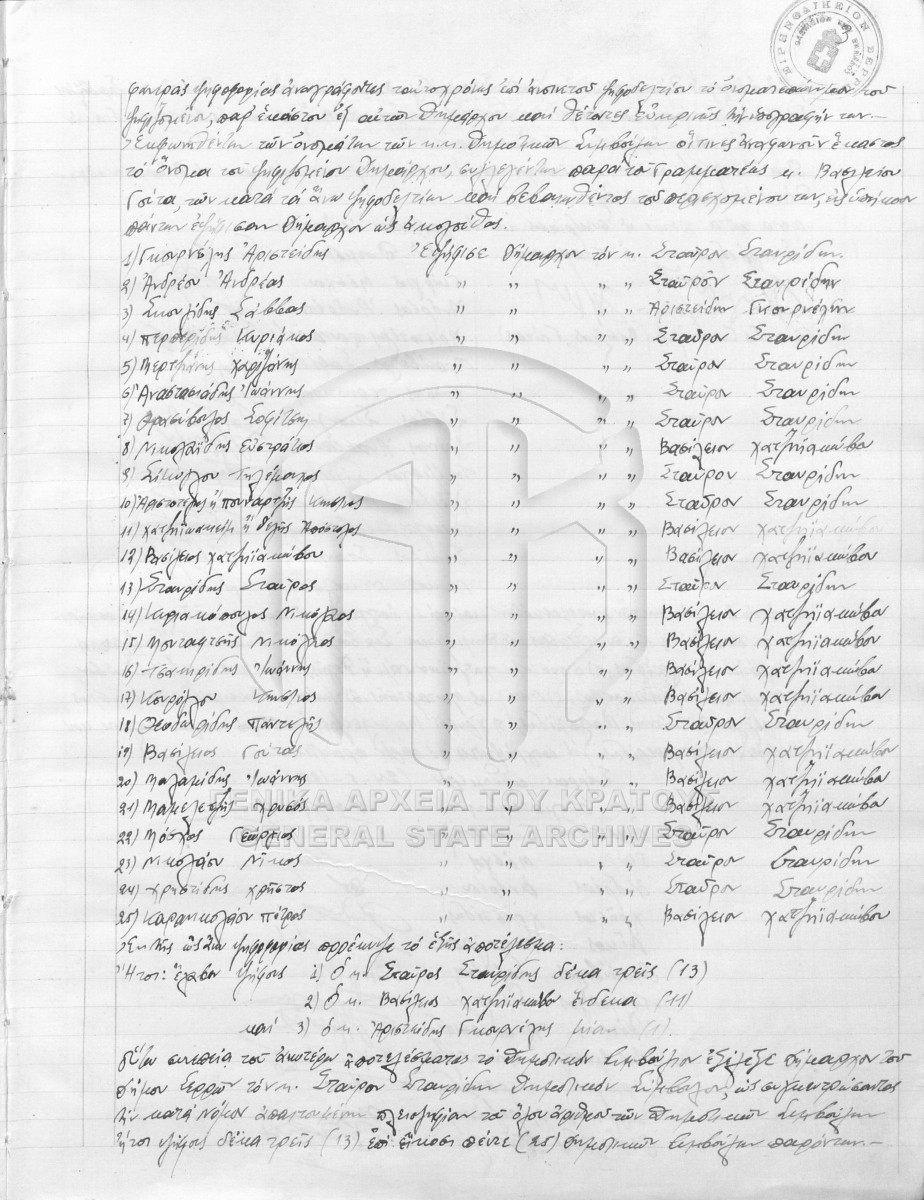 φανερᾶς ψηφοφορίας ἀναγράφοντες ἐπὶ ψηφοδελτίου τὸ ὀνοματεπώνυμον τοῦ
ψηφιζομένου παρ' ἑκάστου ἐξ αὐτῶν Δημάρχου καὶ θέτοντες εὐκρινῶς τὴν ὑπογραφήν των.—
Ἐκφωνηθέντων τῶν ὀνομάτων τῶν κ.κ. Δημοτικῶν Συμβούλων οἵτινες ἕκαστος
τὸ ὄνομα τοῦ ψηφιζομένου Δημάρχου, συλλεγέντων παρὰ τοῦ Γραμματέως κ. Βασιλείου
Γούτα, τῶν κατὰ τὰ ἄνω ψηφοδελτίων καὶ βεβαιωθέντος τοῦ περιεχομένου των,
πάντων ἐψήφισαν Δήμαρχον ὡς ἀκολούθως.
1) Γκιουρνέλης Ἀριστείδης Ἐψήφισε Δήμαρχον τὸν κ. Σταῦρον Σταυρίδην.
2) Ἀνδρέου Ἀνδρέας " " " " Σταῦρον Σταυρίδην
3) Σκουλίδης Σάββας " " " " Ἀριστείδην Γκιουρνέλην
4) Περπερίδης Κυριάκος " " " " Σταῦρον Σταυρίδην
5) Μερτζιάνης Χαρίζανης " " " " Σταῦρον Σταυρίδην
6) Ἀναστασιάδης Ἰωάννης " " " " Σταῦρον Σταυρίδην
7) Θρασύβουλος " " " " Σταῦρον Σταυρίδην
8) Νικολαΐδης Εὐστράτιος " " " " Βασίλειον Χατζηϊακώβου
9) Τηλέμαχος " " " " Σταῦρον Σταυρίδην
10) Ἀριστοτέλης ἢ " " " " Σταῦρον Σταυρίδην
11) ἢ Δελῆς Ἀπόστολος " " " " Βασίλειον Χατζηϊακώβου
12) Βασίλειος Χατζηϊακώβου " " " " Βασίλειον Χατζηϊακώβου
13) Σταυρίδης Σταῦρος " " " " Σταῦρον Σταυρίδην
14) Κυριακόπουλος Νικόλαος " " " " Βασίλειον Χατζηϊακώβου
15) Μουταφτσῆς Νικόλαος " " " " Βασίλειον Χατζηϊακώβου
16) Τσακιρίδης Ἰωάννης " " " " Βασίλειον Χατζηϊακώβου
17) " " " " Βασίλειον Χατζηϊακώβου
18) Θεοδωρίδης Παντελῆς " " " " Σταῦρον Σταυρίδην
19) Βασίλειος Γούτας " " " " Βασίλειον Χατζηϊακώβου
20) Μαλαμίδης Ἰωάννης " " " " Βασίλειον Χατζηϊακώβου
21) Μαμελετζῆς Χρυσὸς " " " " Βασίλειον Χατζηϊακώβου
22) Μόσχος Γεώργιος " " " " Σταῦρον Σταυρίδην
23) Νικολάου Νῖκος " " " " Σταῦρον Σταυρίδην
24) Χρηστίδης Χρῆστος " " " " Σταῦρον Σταυρίδην
25) Καρανικολάου Πέτρος " " " " Βασίλειον Χατζηϊακώβου
Ἐκ τῆς ὡς ἄνω ψηφοφορίας προέκυψε τὸ ἑξῆς ἀποτέλεσμα:
Ἤτοι: ἔλαβον ψήφους 1) Ὁ κ. Σταῦρος Σταυρίδης δέκα τρεῖς (13)
2) Ὁ κ. Βασίλειος Χατζηϊακώβου ἕνδεκα (11)
καὶ 3) ὁ κ. Ἀριστείδης Γκιουρνέλης μίαν (1).
συνεπείᾳ τοῦ ἀνωτέρω ἀποτελέσματος τὸ Δημοτικὸν Συμβούλιον ἐξέλεξε Δήμαρχον τοῦ
Δήμου Σερρῶν τὸν κ. Σταῦρον Σταυρίδην Δημοτικὸν Σύμβουλον, ὡς συγκεντρώσαντα
τὴν κατὰ Νόμον ἀπαιτουμένην πλειοψηφίαν τοῦ ὅλου ἀριθμοῦ τῶν Δημοτικῶν Συμβούλων
ἤτοι ψήφους δέκα τρεῖς (13) ἐπὶ εἴκοσι πέντε (25) Δημοτικῶν Συμβούλων παρόντων.—
ΓΕΝΙΚΑ ΑΡΧΕΙΑ ΤΟΥ ΚΡΑΤΟΥΣ
GENERAL STATE ARCHIVES